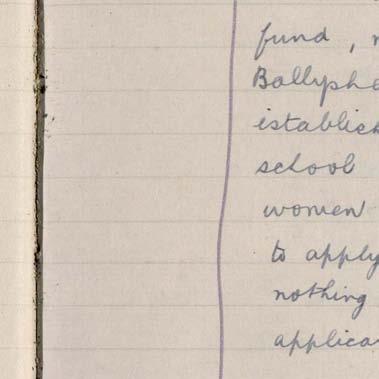 fund, n
Ballyphe
istablish
school
women
to apply
nothing
applica